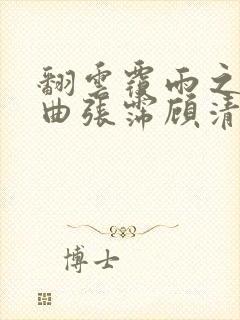 翻雲覆雨之
曲張霈顧清
博士